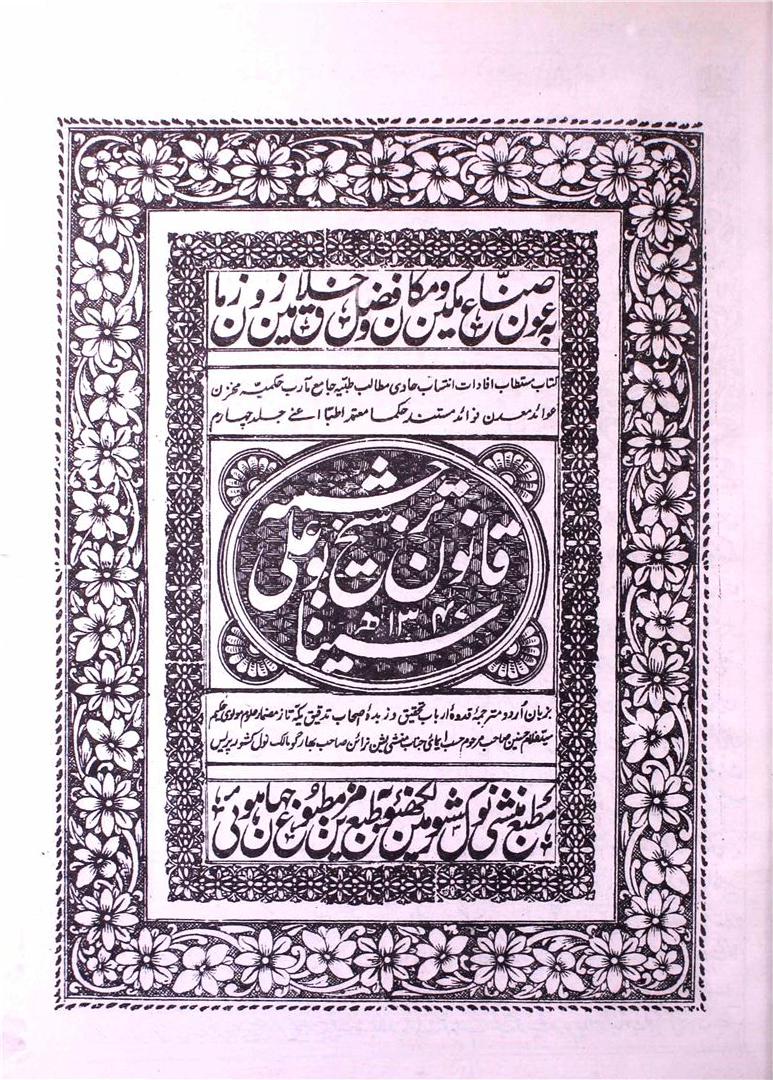 بہ عون صناع مکین و مکان و فضل خلاق زمین و زمان
کتاب مستطاب افادات انتساب حاوی مطالب طبیہ جامع مآرب حکمیہ مخزن
عوائد معدن فوائد مستند حکما معتمد اطبا اعنے جلد چہارم
ترجمہ
قانون شیخ بوعلی
سینا
۱۳۴۷ھ
بزبان اُردو مترجمۂ قدوۂ ارباب تحقیق و زبدۂ اصحاب تدقیق یکہ تاز مضمار علوم مولوی حکیم
سید غلام حسنین صاحب مرحوم حسب ایمائے جناب منشی بشن نرائن صاحب بھارگو مالک نول کشور پریس
مطبع منشی نول کشور لکھنؤ مین بطبع مزین مطبوع جہان ہوئی